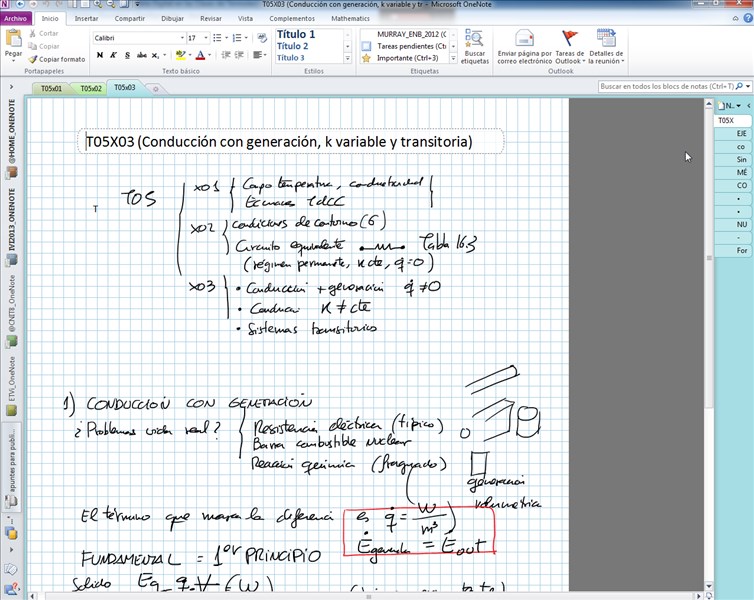 T05X03 (Conducción con generación, k variable y tr - Microsoft OneNote
Archivo Inicio Insertar Compartir Dibujar Revisar Vista Complementos Mathematics
Pegar
Cortar
Copiar
Copiar formato
Portapapeles
Calibri 17
N K S abc x₂
Texto básico
Título 1
Título 2
Título 3
Estilos
MURRAY_ENB_2012 (C
Tareas pendientes (Ctrl
Importante (Ctrl+3)
Etiquetas
Buscar etiquetas
Enviar página por correo electrónico
Tareas de Outlook
Detalles de la reunión
Outlook
T05x01 T05x02 T05x03
Buscar en todos los blocs de notas (Ctrl+T)
@HOME_ONENOTE
TVI2013_ONENOTE
@CNITB_OneNote
ETVI_OneNote
apuntes para publi
N..
T05X
EJE
co
Sin
MÉ
CO
•
•
NU
-
For
T05X03 (Conducción con generación, k variable y transitoria)
T05
X01 Campo temperatura, conductividad
Ecuación TdCC
X02 condiciones de contorno (6)
Circuito equivalente Tabla 16.3
(régimen permanente, k cte, q̇=0)
X03 • Conducción + generación q̇≠0
• Conducción K≠cte
• Sistemas transitorios
1) CONDUCCION CON GENERACIÓN
¿Problemas vida real? Resistencia eléctrica (típico)
Barra combustible nuclear
Reacción química (fraguado)
generación
volumétrica
El término que marca la diferencia es q̇ = W/m³
Ėgenerada = Ėout
FUNDAMENTAL = 1er PRINCIPIO
Sólido
(W)